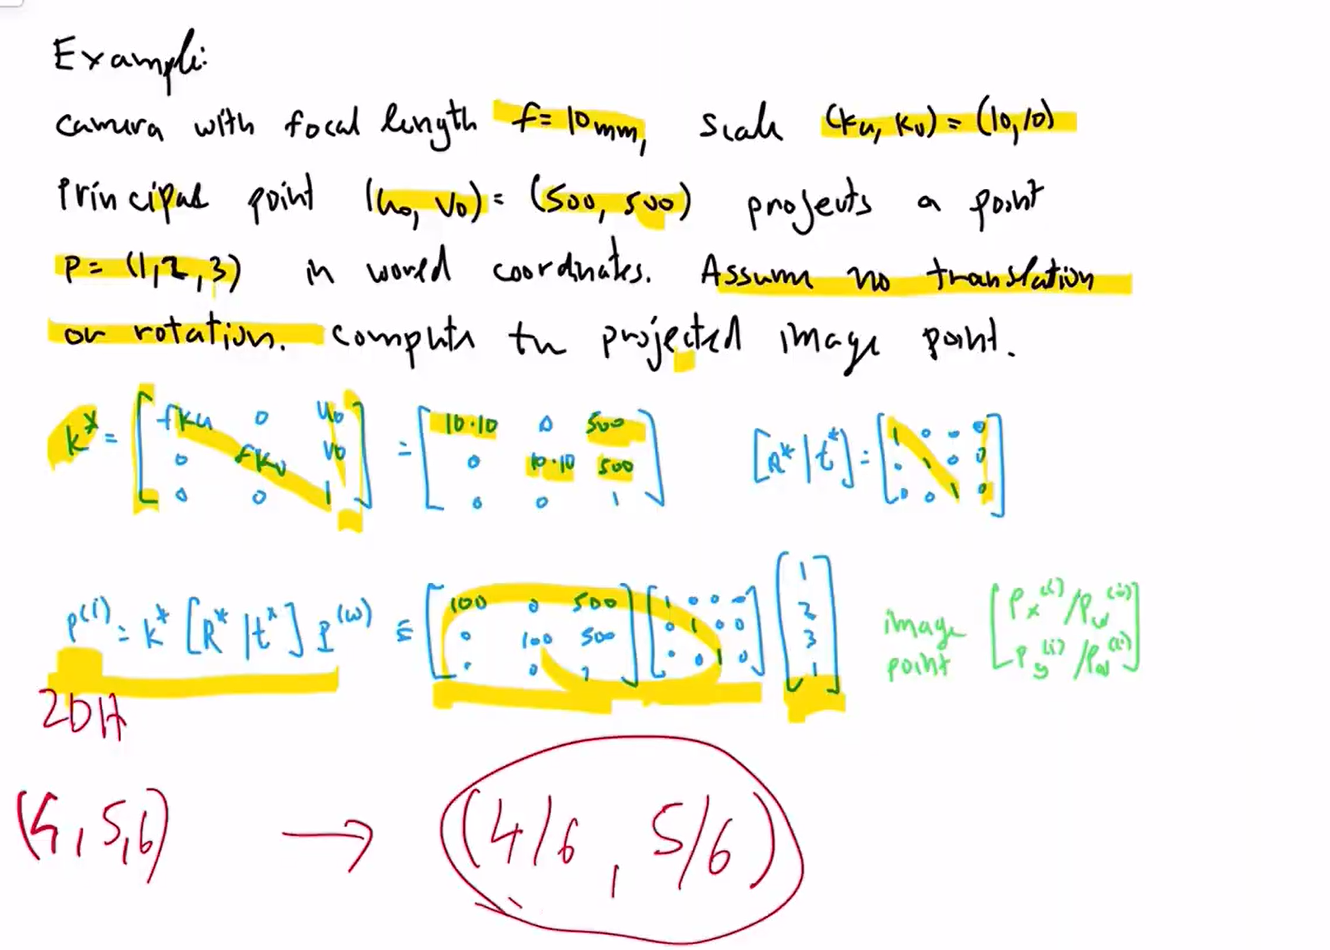 Example:
camera with focal length f=10mm, scale (ku, kv) = (10,10)
Principal point (u₀, v₀) = (500, 500) projects a point
P = (1,2,3) in world coordinates. Assume no translation
or rotation. compute the projected image point.
K* = [ fku 0 u₀ ; 0 fkv v₀ ; 0 0 1 ] = [ 10·10 0 500 ; 0 10·10 500 ; 0 0 1 ] [R* | t*] = [ 1 0 0 0 ; 0 1 0 0 ; 0 0 1 0 ]
p^(i) = K* [R* | t*] P^(w) = [ 100 0 500 ; 0 100 500 ; 0 0 1 ] [ 1 0 0 0 ; 0 1 0 0 ; 0 0 1 0 ] [ 1 ; 2 ; 3 ; 1 ] image point [ Px^(i)/Pw^(i) ; Py^(i)/Pw^(i) ]
2DH
(4, 5, 6) → (4/6, 5/6)